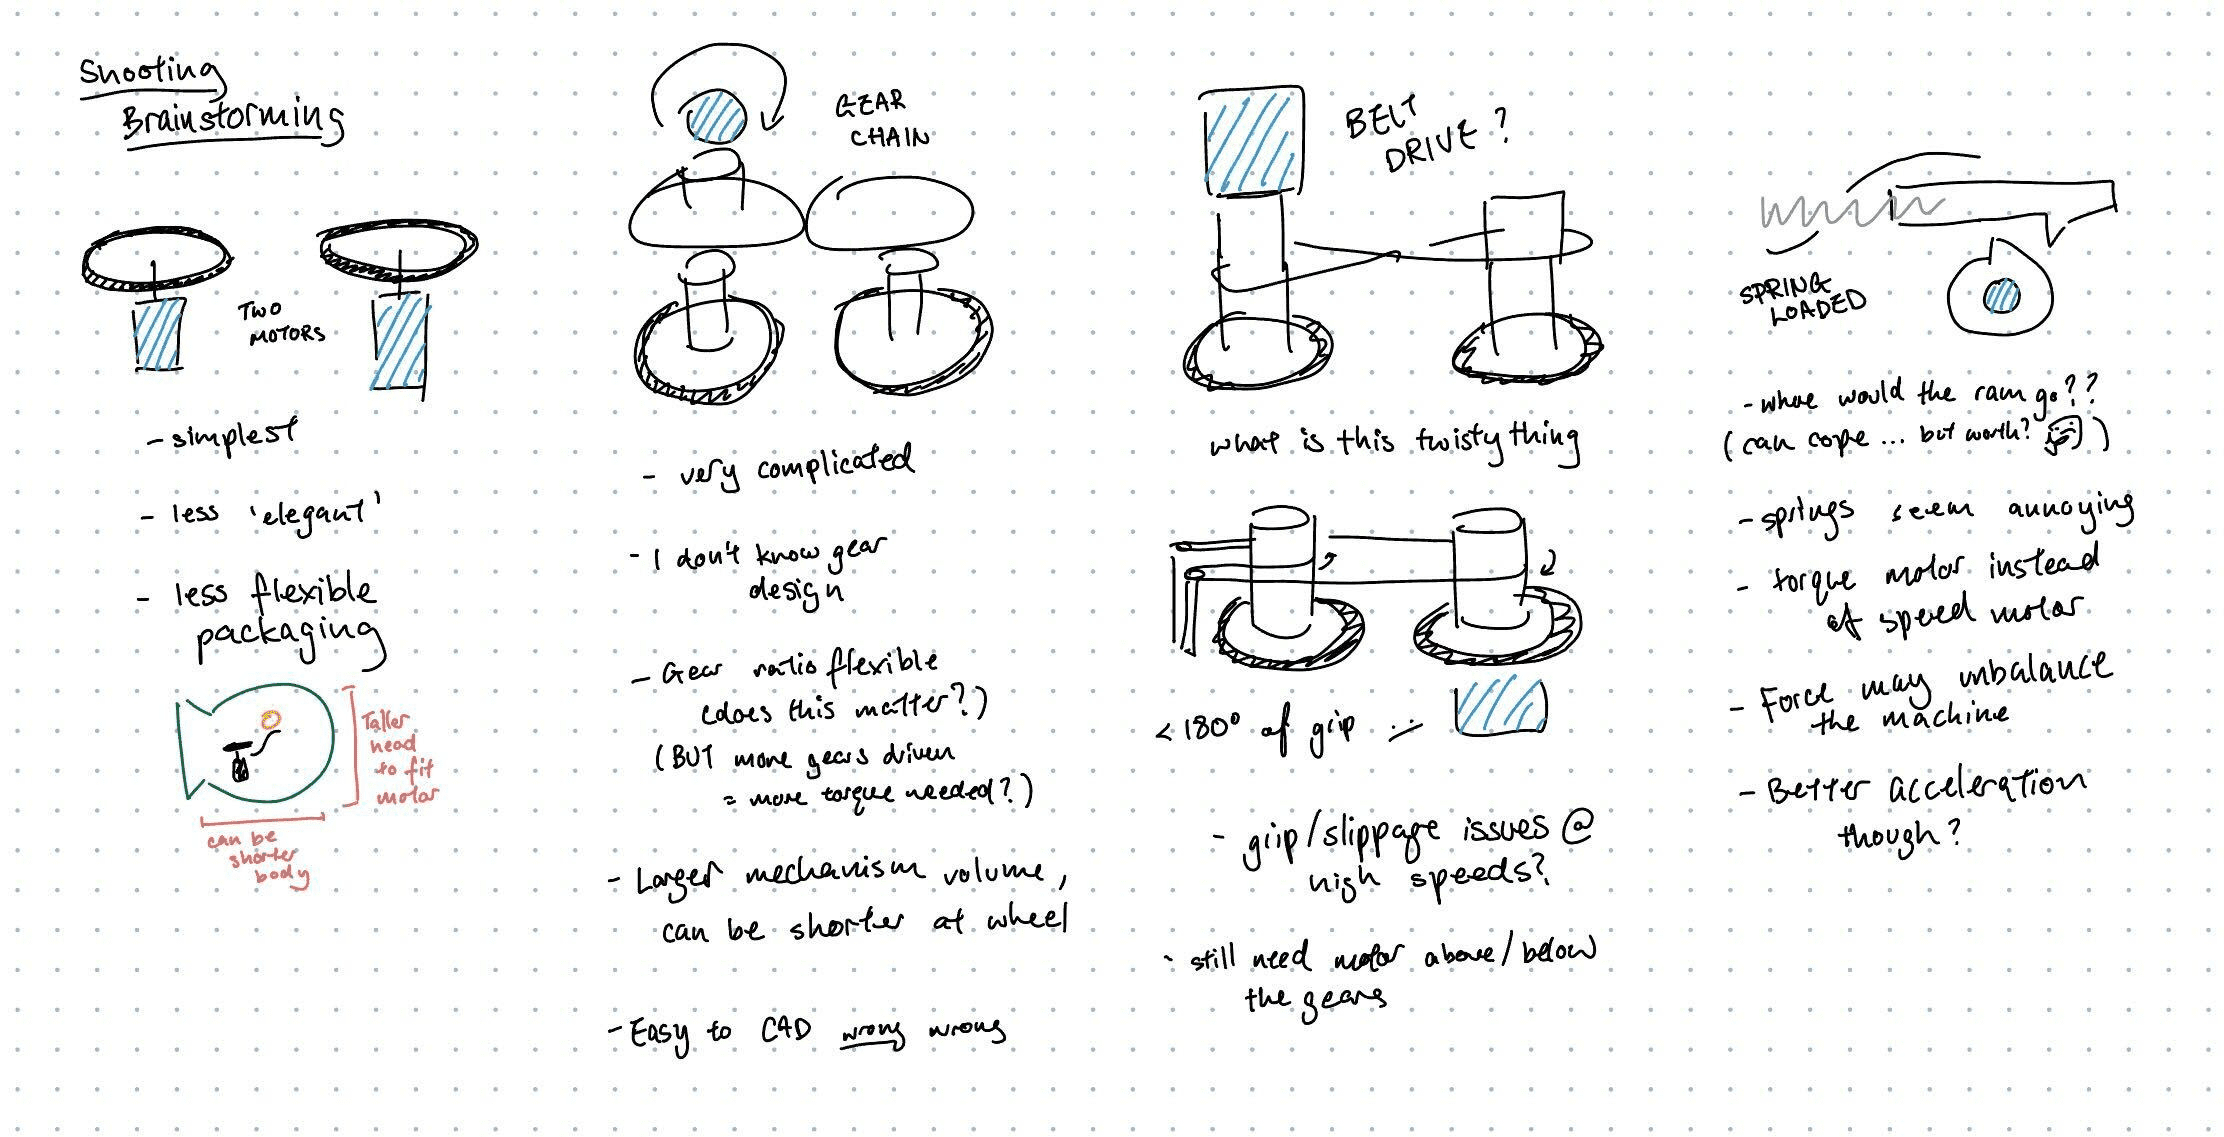 Shooting
Brainstorming
TWO
MOTORS
- simplest
- less 'elegant'
- less flexible
packaging
Taller
head
to fit
motor
can be
shorter
body
GEAR
CHAIN
- very complicated
- I don't know gear
design
- Gear ratio flexible
(does this matter?)
(BUT more gears driven
= more torque needed?)
- Larger mechanism volume,
can be shorter at wheel
- Easy to CAD wrong wrong
BELT
DRIVE?
what is this twisty thing
<180° of grip
- grip/slippage issues @
high speeds?
- still need motor above/below
the gears
SPRING
LOADED
- where would the ram go??
(can cope... but worth? )
- springs seem annoying
- torque motor instead
of speed motor
- Force may unbalance
the machine
- Better acceleration
though?